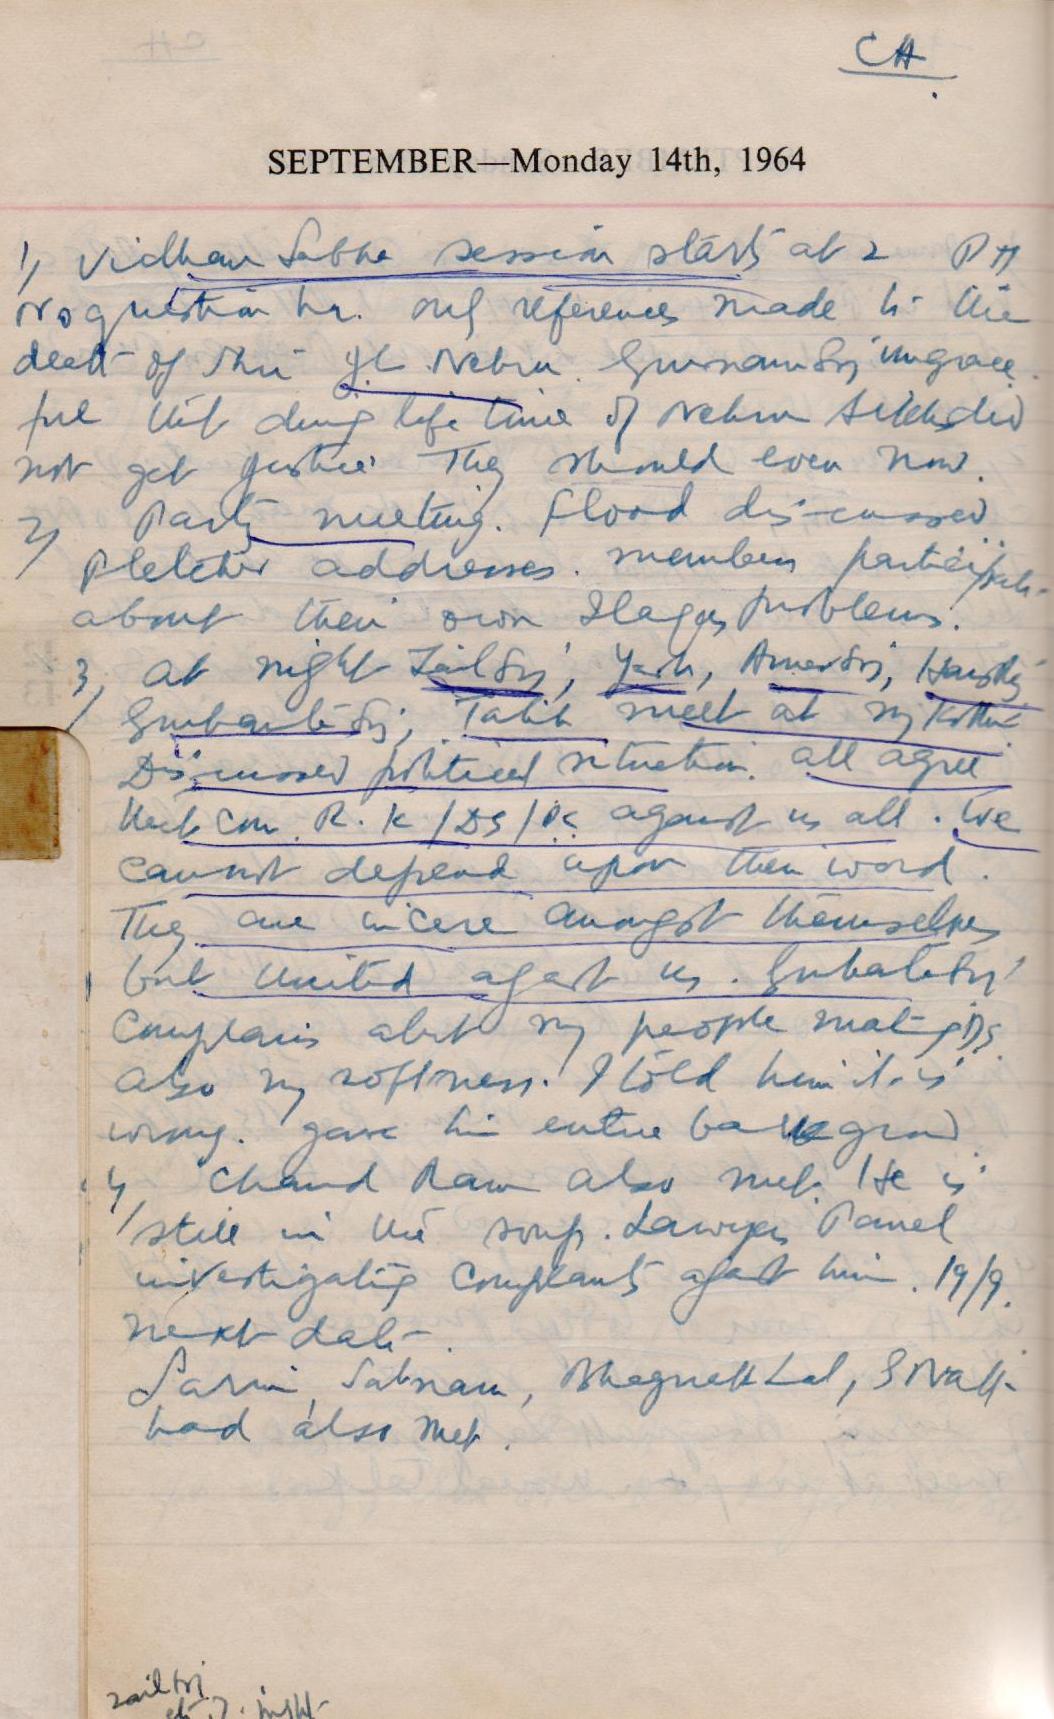 CH
SEPTEMBER—Monday 14th, 1964
1, Vidhan Sabha session starts at 2 PM
No question hr. only references made to the
death of Shri J.L. Nehru. Gurnam Sj ungrace
ful that during life time of Nehru Sikhs did
not get justice They should even now.
2, Party meeting. Flood discussed
addresses. members
about their own Ilaqas problems.
3, at night Zail Sj, Yash, Amar Sj,
Gurbanta Sj, Talib meet at my Kothi
Discussed political situation. all agree
that Com. R.K/DS/PC against us all. We
cannot depend upon their word.
They are amongst themselves
but united against us. Gurbanta Sj
complains about my people
also my softness. I told him it is
wrong. gave him entire background
4, Chand Ram also met. He is
still in the soup. Lawyers Panel
investigating complaints against him. 19/9.
next date.
Satnam, Lal,
had also met.
Zail Sj
night